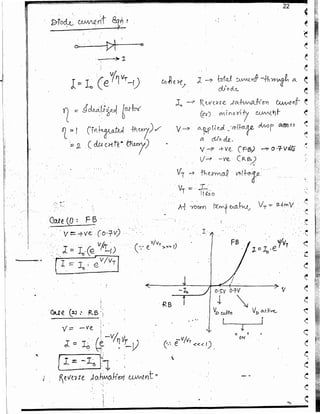 22
Diode current Eqn :
→ I
I = I₀ (e^V/ηVT -1)
where, I → total current through a diode
I₀ → Reverse saturation current
(or) minority current
η = Idealized factor
η = 1 (Integrated theory)
= 2 (discrete theory)
V → applied voltage drop across
a diode.
V → +ve (FB) → 0.7 Volts
V → -ve (RB)
VT → thermal voltage
VT = T/11600
At room temperature, VT = 26mV
Case (1) : FB
V = +ve (0.7V)
I = I₀ (e^V/VT -1)
(∵ e^V/VT >>> 1)
I = I₀ . e^V/VT
I
FB
I = I₀.e^V/VT
-I₀
0.5V 0.7V
V
RB
VD cutin
VD active
Case (2) : RB
V = -ve
I = I₀ (e^-V/ηVT -1)
(∵ e^-V/VT <<< 1)
I = -I₀
Reverse saturation current